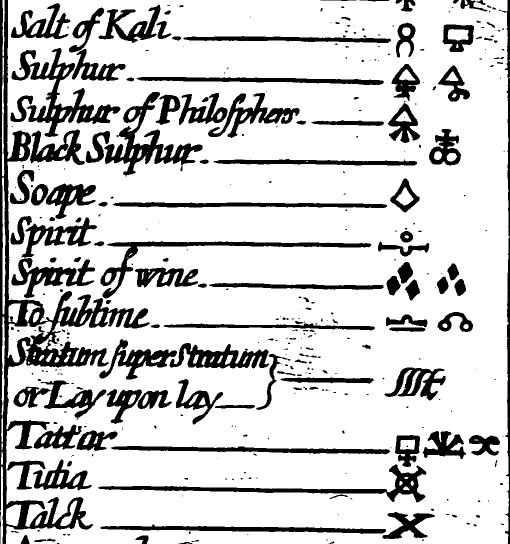 Salt of Kali
Sulphur
Sulphur of Philosphers
Black Sulphur
Soape
Spirit
Spirit of wine
To ſublime
Stratum ſuper Stratum
or Lay upon lay
Tartar
Tutia
Talck